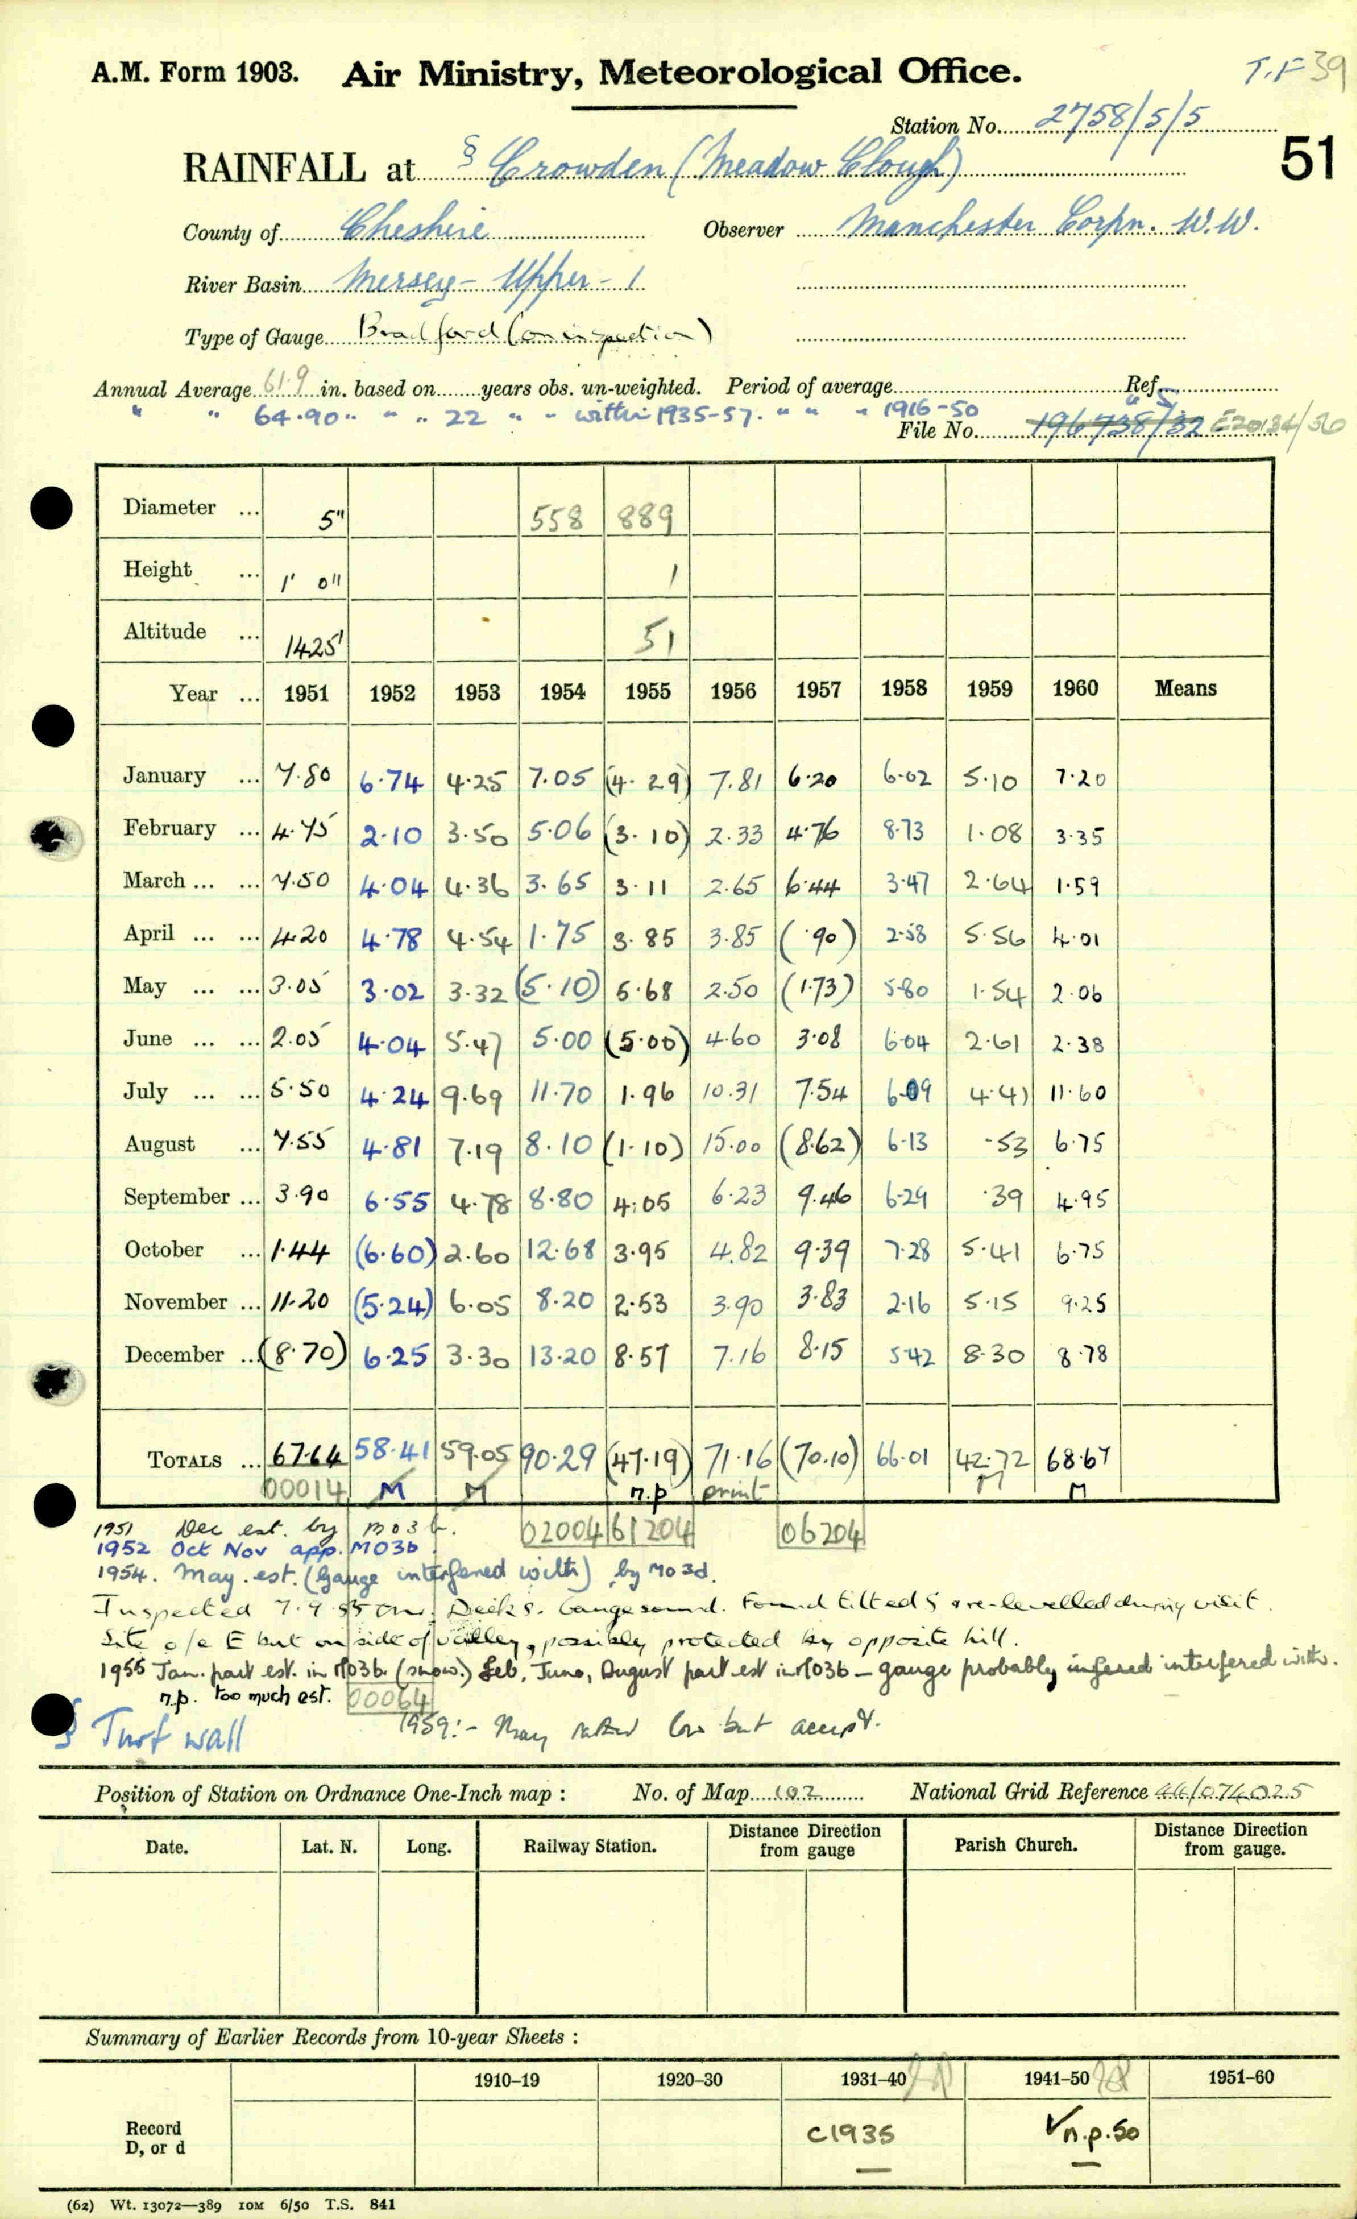 A.M. Form 1903. Air Ministry, Meteorological Office. T.F 39
Station No. 2758/5/5
51
RAINFALL at § Crowden (Meadow Clough)
County of Cheshire Observer Manchester Corpn. W.W.
River Basin Mersey - Upper - 1
Type of Gauge Bradford (on inspection)
Annual Average 61.9 in. based on years obs. un-weighted. Period of average Ref.
" " 64.90 " " " 22 " " within 1935-57. " " " 1916-50 " 5
File No. 196738/32 E20134/56
Diameter ... 5" 558 889
Height ... 1' 0" 1
Altitude ... 1425' 51
Year ... 1951 1952 1953 1954 1955 1956 1957 1958 1959 1960 Means
January ... 7.80 6.74 4.25 7.05 (4.29) 7.81 6.20 6.02 5.10 7.20
February ... 4.75 2.10 3.50 5.06 (3.10) 2.33 4.76 8.73 1.08 3.35
March ... ... 7.50 4.04 4.36 3.65 3.11 2.65 6.44 3.47 2.64 1.59
April ... ... 4.20 4.78 4.54 1.75 3.85 3.85 (.90) 2.58 5.56 4.01
May ... ... 3.05 3.02 3.32 (5.10) 5.68 2.50 (1.73) 5.80 1.54 2.06
June ... ... 2.05 4.04 5.47 5.00 (5.00) 4.60 3.08 6.04 2.61 2.38
July ... ... 5.50 4.24 9.69 11.70 1.96 10.31 7.54 6.09 4.41 11.60
August ... 7.55 4.81 7.19 8.10 (1.10) 15.00 (8.62) 6.13 .53 6.75
September ... 3.90 6.55 4.78 8.80 4.05 6.23 9.46 6.29 .39 4.95
October ... 1.44 (6.60) 2.60 12.68 3.95 4.82 9.39 7.28 5.41 6.75
November ... 11.20 (5.24) 6.05 8.20 2.53 3.90 3.83 2.16 5.15 9.25
December ... (8.70) 6.25 3.30 13.20 8.57 7.16 8.15 5.42 8.30 8.78
TOTALS ... 67.64 58.41 59.05 90.29 (47.19) 71.16 (70.10) 66.01 42.72 68.67
00014 M M n.p print M M
02004 61204 06204
1951 Dec est. by M03b.
1952 Oct Nov app. M03b.
1954. May. est. (Gauge interfered with) by M03d.
Inspected 7.9.55 Gauge sound. Found tilted & re-levelled during visit.
Site o/e E but on side of valley, possibly protected by opposite hill.
1955 Jan. part est. in M03b. (snow.) Feb, June, August part est in M03b - gauge probably infered interfered with.
n.p. too much est. 00064
1959:- May rather low but accept.
§ Turf wall
Position of Station on Ordnance One-Inch map : No. of Map 102 National Grid Reference 44/074025
Date. Lat. N. Long. Railway Station. Distance Direction from gauge Parish Church. Distance Direction from gauge.
Summary of Earlier Records from 10-year Sheets :
1910–19 1920–30 1931–40 1941–50 1951–60
Record D, or d C1935 √n.p.50
(62) Wt. 13072—389 10M 6/50 T.S. 841